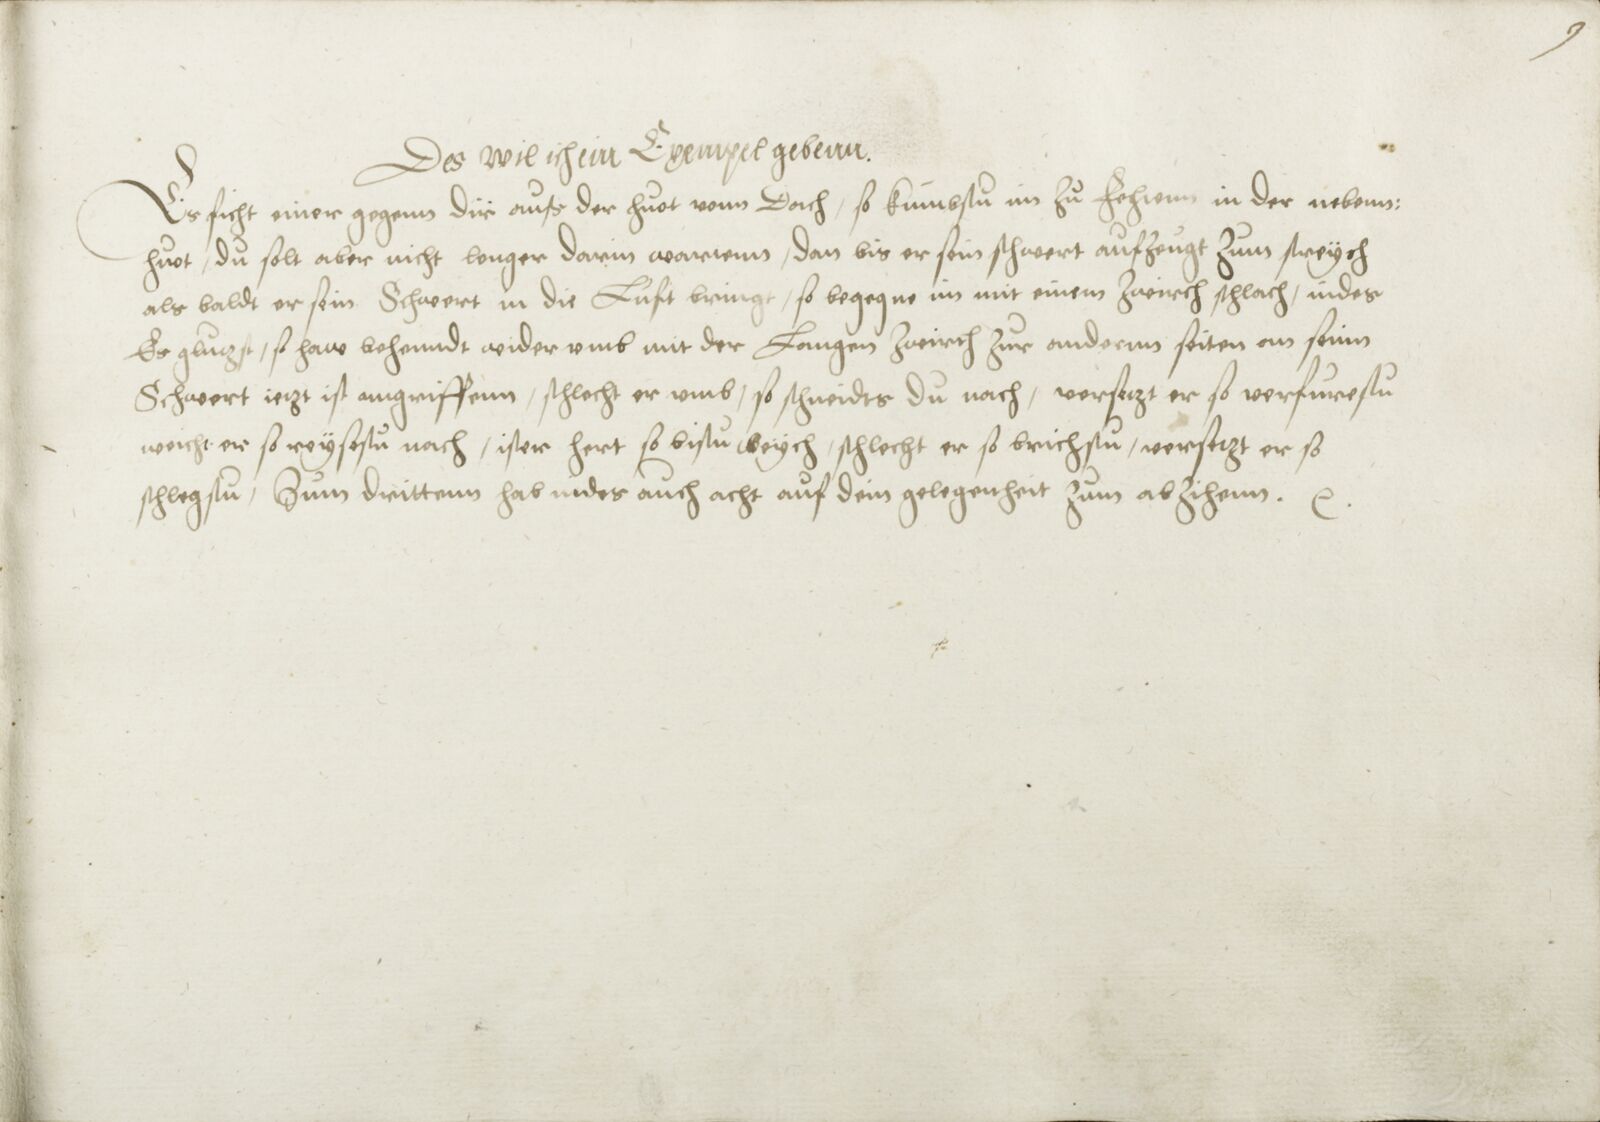 9
Des wil ich ein Exempel gebenn.
Es ficht einer gegenn dir aufs der huot vonn Dach / so kumbstu im zu fechtenn in der nebenn:
huot / du solt aber nicht lenger darin wartenn / dan bis er sein schwert aufzeugt zum streych
als baldt er sein Schwert in die Luft bringt / so begegne im mit einem zwirch schlach / indes
Es glutzst / so haw behenndt wider umb mit der Langen zwirch zur andernn seiten an seinn
Schwert ietzt ist angriffenn / schlecht er umb / so schneidts du nach / versetzt er so verfurestu
weicht er so reysestu nach / ister hert so bistu weych / schlecht er so brichstu / versetzt er so
schlegstu / Zum drittenn hab indes auch acht auf dein gelegenheit zum abzihenn.